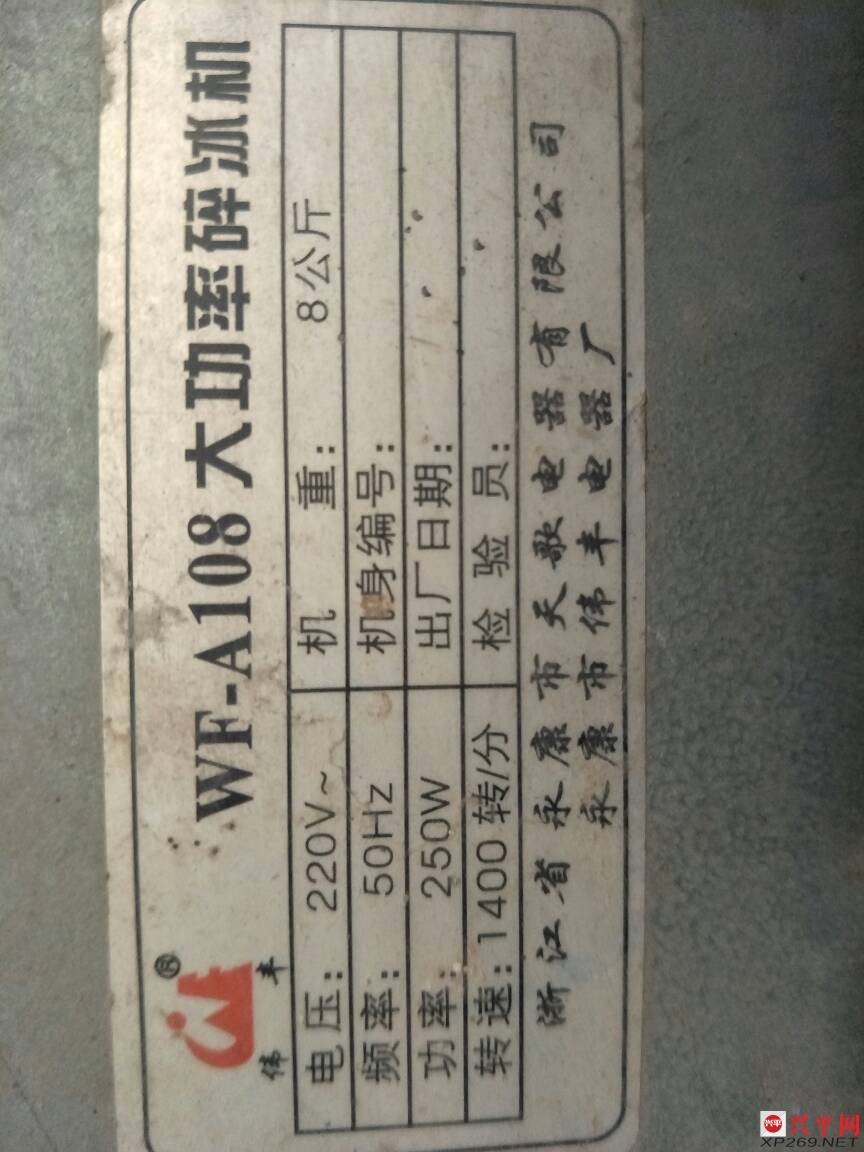 WF-A108大功率碎冰机
®
伟丰
电压：220V~ 机重：8公斤
频率：50Hz 机身编号：
功率：250W 出厂日期：
转速：1400转/分 检验员：
浙江省永康市天歌电器有限公司
永康市伟丰电器厂
兴平 兴平网
XP269.NET